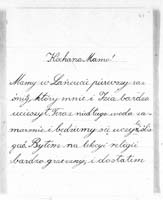 Kochana Mamo!
Mamy w Łańcucie pierwszy
śnieg, który mnie i Izia bardzo
ucieszył. Teraz niedługo woda za-
marznie i będziemy się uczyć śliz-
gać. Byłem na lekcji religii
bardzo grzeczny, i dostałem